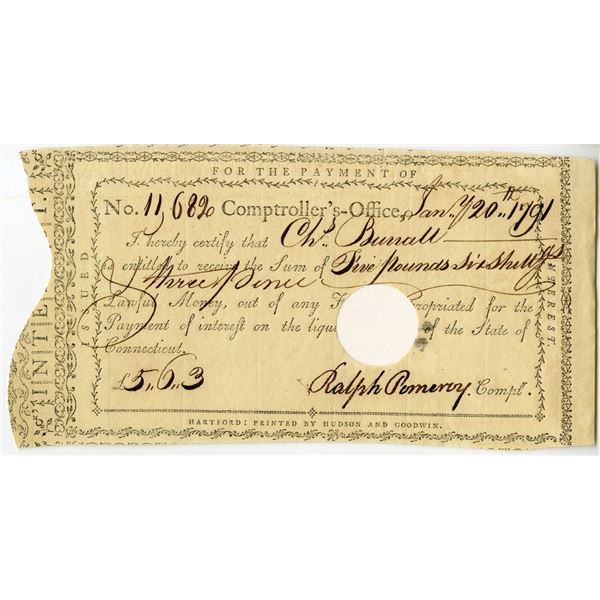 FOR THE PAYMENT OF
No. 11,682 Comptroller's-Office, Jan.y 20th 1791
I hereby certify that Chs Burrall
is entitled to receive the Sum of Five pounds six shillgs
three pence
Lawful Money, out of any ropriated for the
Payment of interest on the liqui of the State of
Connecticut.
£5,,6,,3 Ralph Pomeroy. Compt'.
HARTFORD: PRINTED BY HUDSON AND GOODWIN.
ISSUED
INTEREST.
INTE